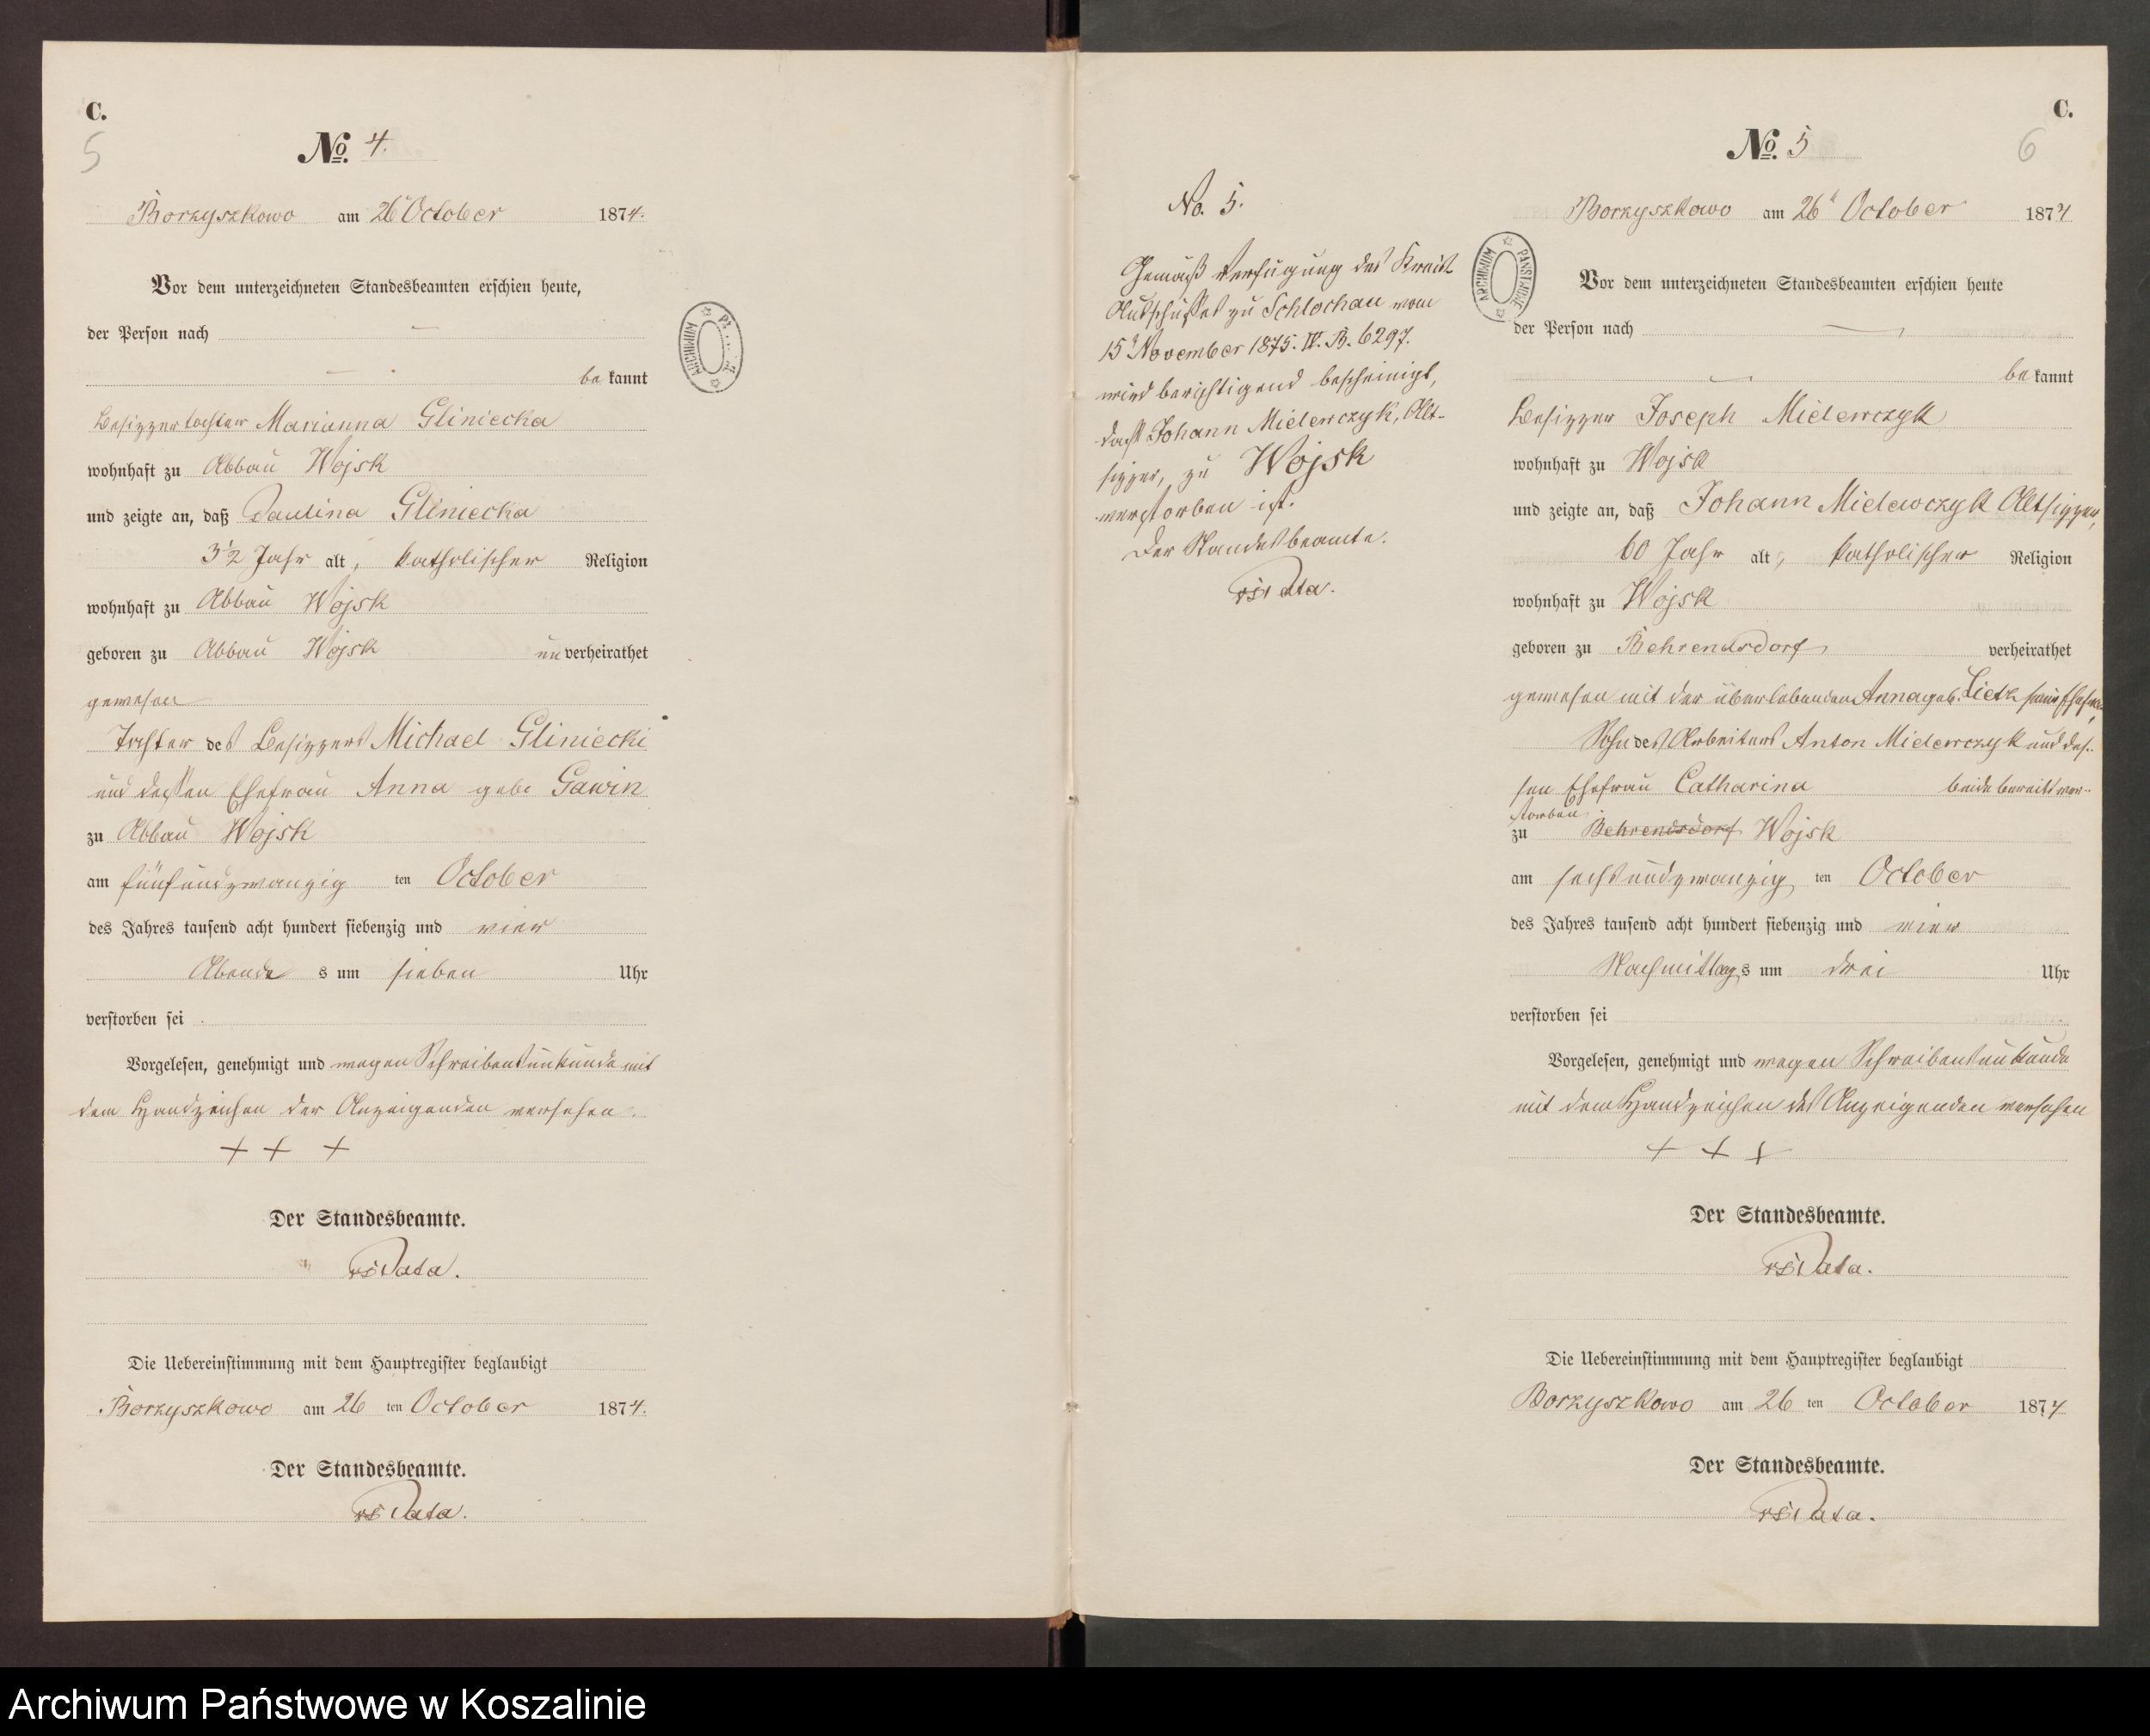 C.
5
No. 4.
Borzyszkowo am 26t October 1874.
Vor dem unterzeichneten Standesbeamten erschien heute,
der Person nach
bekannt
Besizzertochter Marianna Gliniecka
wohnhaft zu Abbau Wojsk
und zeigte an, daß Paulina Gliniecka
3½ Jahr alt, katholischer Religion
wohnhaft zu Abbau Wojsk
geboren zu Abbau Wojsk unverheirathet
gewesen
Tochter des Besizzers Michael Gliniecki
und dessen Ehefrau Anna geb. Gawin
zu Abbau Wojsk
am fünfundzwanzig ten October
des Jahres tausend acht hundert siebenzig und vier
Abends um sieben Uhr
verstorben sei
Vorgelesen, genehmigt und wegen Schreibensunkunde mit
dem Handzeichen der Anzeigenden versehen.
+ + +
Der Standesbeamte.
Die Uebereinstimmung mit dem Hauptregister beglaubigt
Borzyszkowo am 26 ten October 1874.
Der Standesbeamte.
ARCHIWUM
No. 5.
Gemäß Verfügung des Kreis
Ausschusses zu Schlochau vom
15t November 1875. IV. B. 6297.
wird berichtigend bescheinigt,
dass Johann Mielewczyk, Alt-
sizzer, zu Wojsk
verstorben ist.
Der Standesbeamte.
ARCHIWUM PAŃSTWOWE
C.
6
No. 5
Borzyszkowo am 26t October 1874
Vor dem unterzeichneten Standesbeamten erschien heute
der Person nach
bekannt
Besizzer Joseph Mielewczyk
wohnhaft zu Wojsk
und zeigte an, daß Johann Mielewczyk Altsizzer,
60 Jahr alt, katholischer Religion
wohnhaft zu Wojsk
geboren zu Behrendsdorf verheirathet
gewesen mit der überlebenden Anna geb. Lietk seine Ehefrau,
Sohn des Arbeiters Anton Mielewczyk und des-
sen Ehefrau Catharina beide bereits ver-
storben
zu Behrendsdorf Wojsk
am sechsundzwanzig ten October
des Jahres tausend acht hundert siebenzig und vier
Nachmittags um drei Uhr
verstorben sei
Vorgelesen, genehmigt und wegen Schreibensunkunde
mit dem Handzeichen des Anzeigenden versehen
+ + +
Der Standesbeamte.
Die Uebereinstimmung mit dem Hauptregister beglaubigt
Borzyszkowo am 26 ten October 1874
Der Standesbeamte.
Archiwum Państwowe w Koszalinie